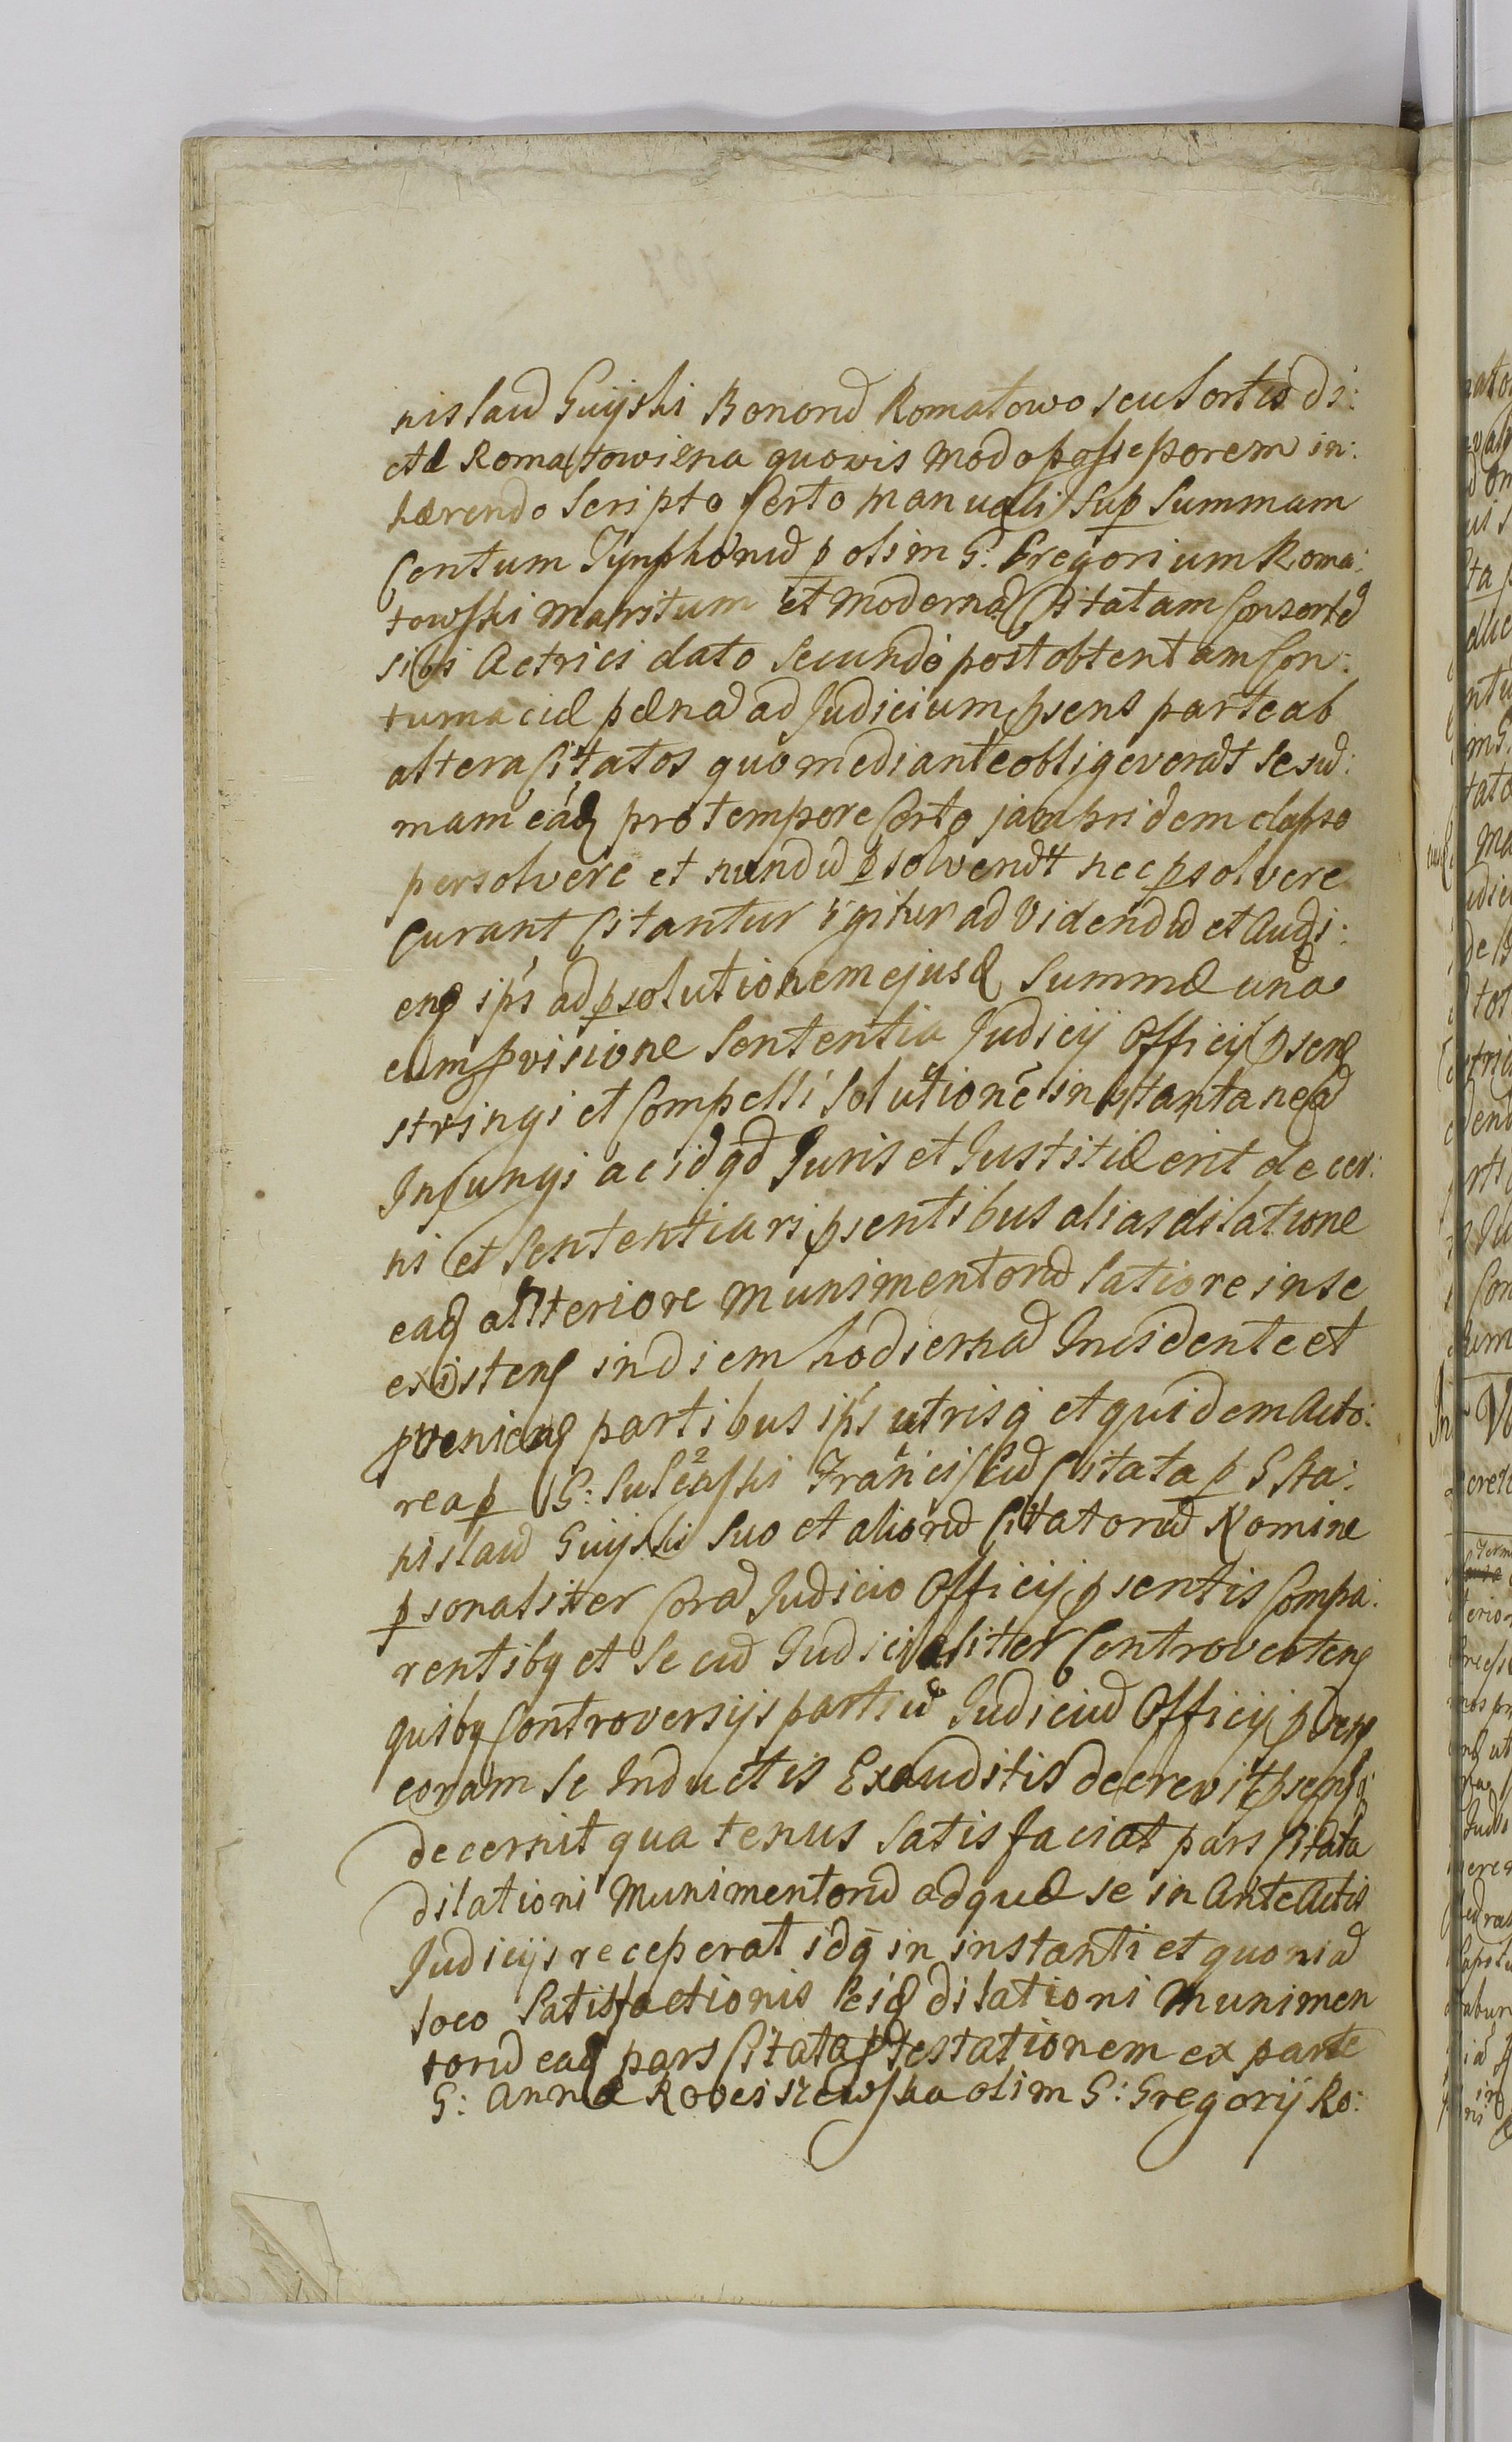 nislaũ Guijski Bonorũ Romatowo seu sortis di:
ctæ Romatowizna quovis modo possessorem in:
hærendo Scripto Certo manuali Sup Summam
Centum Tynphonũ p olim G: Gregorium Roma:
towski maritum et modernã Citatam Consortẽ
sibi Actrici dato Secundo post obtentam Con:
tumaciæ pænã ad Judicium psens parte ab
altera Citatos quo mediante obligaverũt se sũ:
mam eãd pro tempore Certo jam pridem elapso
persolvere et nundũ psolverũt nec psolvere
Curant Citantur igitur ad Videndũ et Audi:
end ipś ad psolutionem ejusd Summæ una
cum pvisione Sententia Judicij Officij psen
stringi et Compelli Solutionẽ instantaneã
Injungi ac id qd Juris et Justitiæ erit decer:
ni et Sententiari psentibus alias dilatione
ead ulteriore munimentorũ Latiore in se
existen in diem hodiernã Incidente et
pvenien partibus ipś utrisq et quidem Acto:
rea p G: Franciscũ Citata p G Sta:
nislaũ Guijski Suo et aliorũ Citatorũ Nomine
psonaliter Corã Judicio Officij psentis Compa:
rentibq et Se cũ Judicialiter Controverten
quibq Controversijs partiũ Judiciũ Officij psen
coram Se Inductis Exauditis decrevit psensq
decernit qua tenus Satisfaciat pars Citata
dilationi Munimentorũ ad quæ se in Anteactis
Judicijs receperat idq in instanti et quoniã
loco Satisfactionis eid dilationi Munimen
torũ ead pars Citata ptestationem ex parte
G: Annæ olim G: Gregorij Ro: